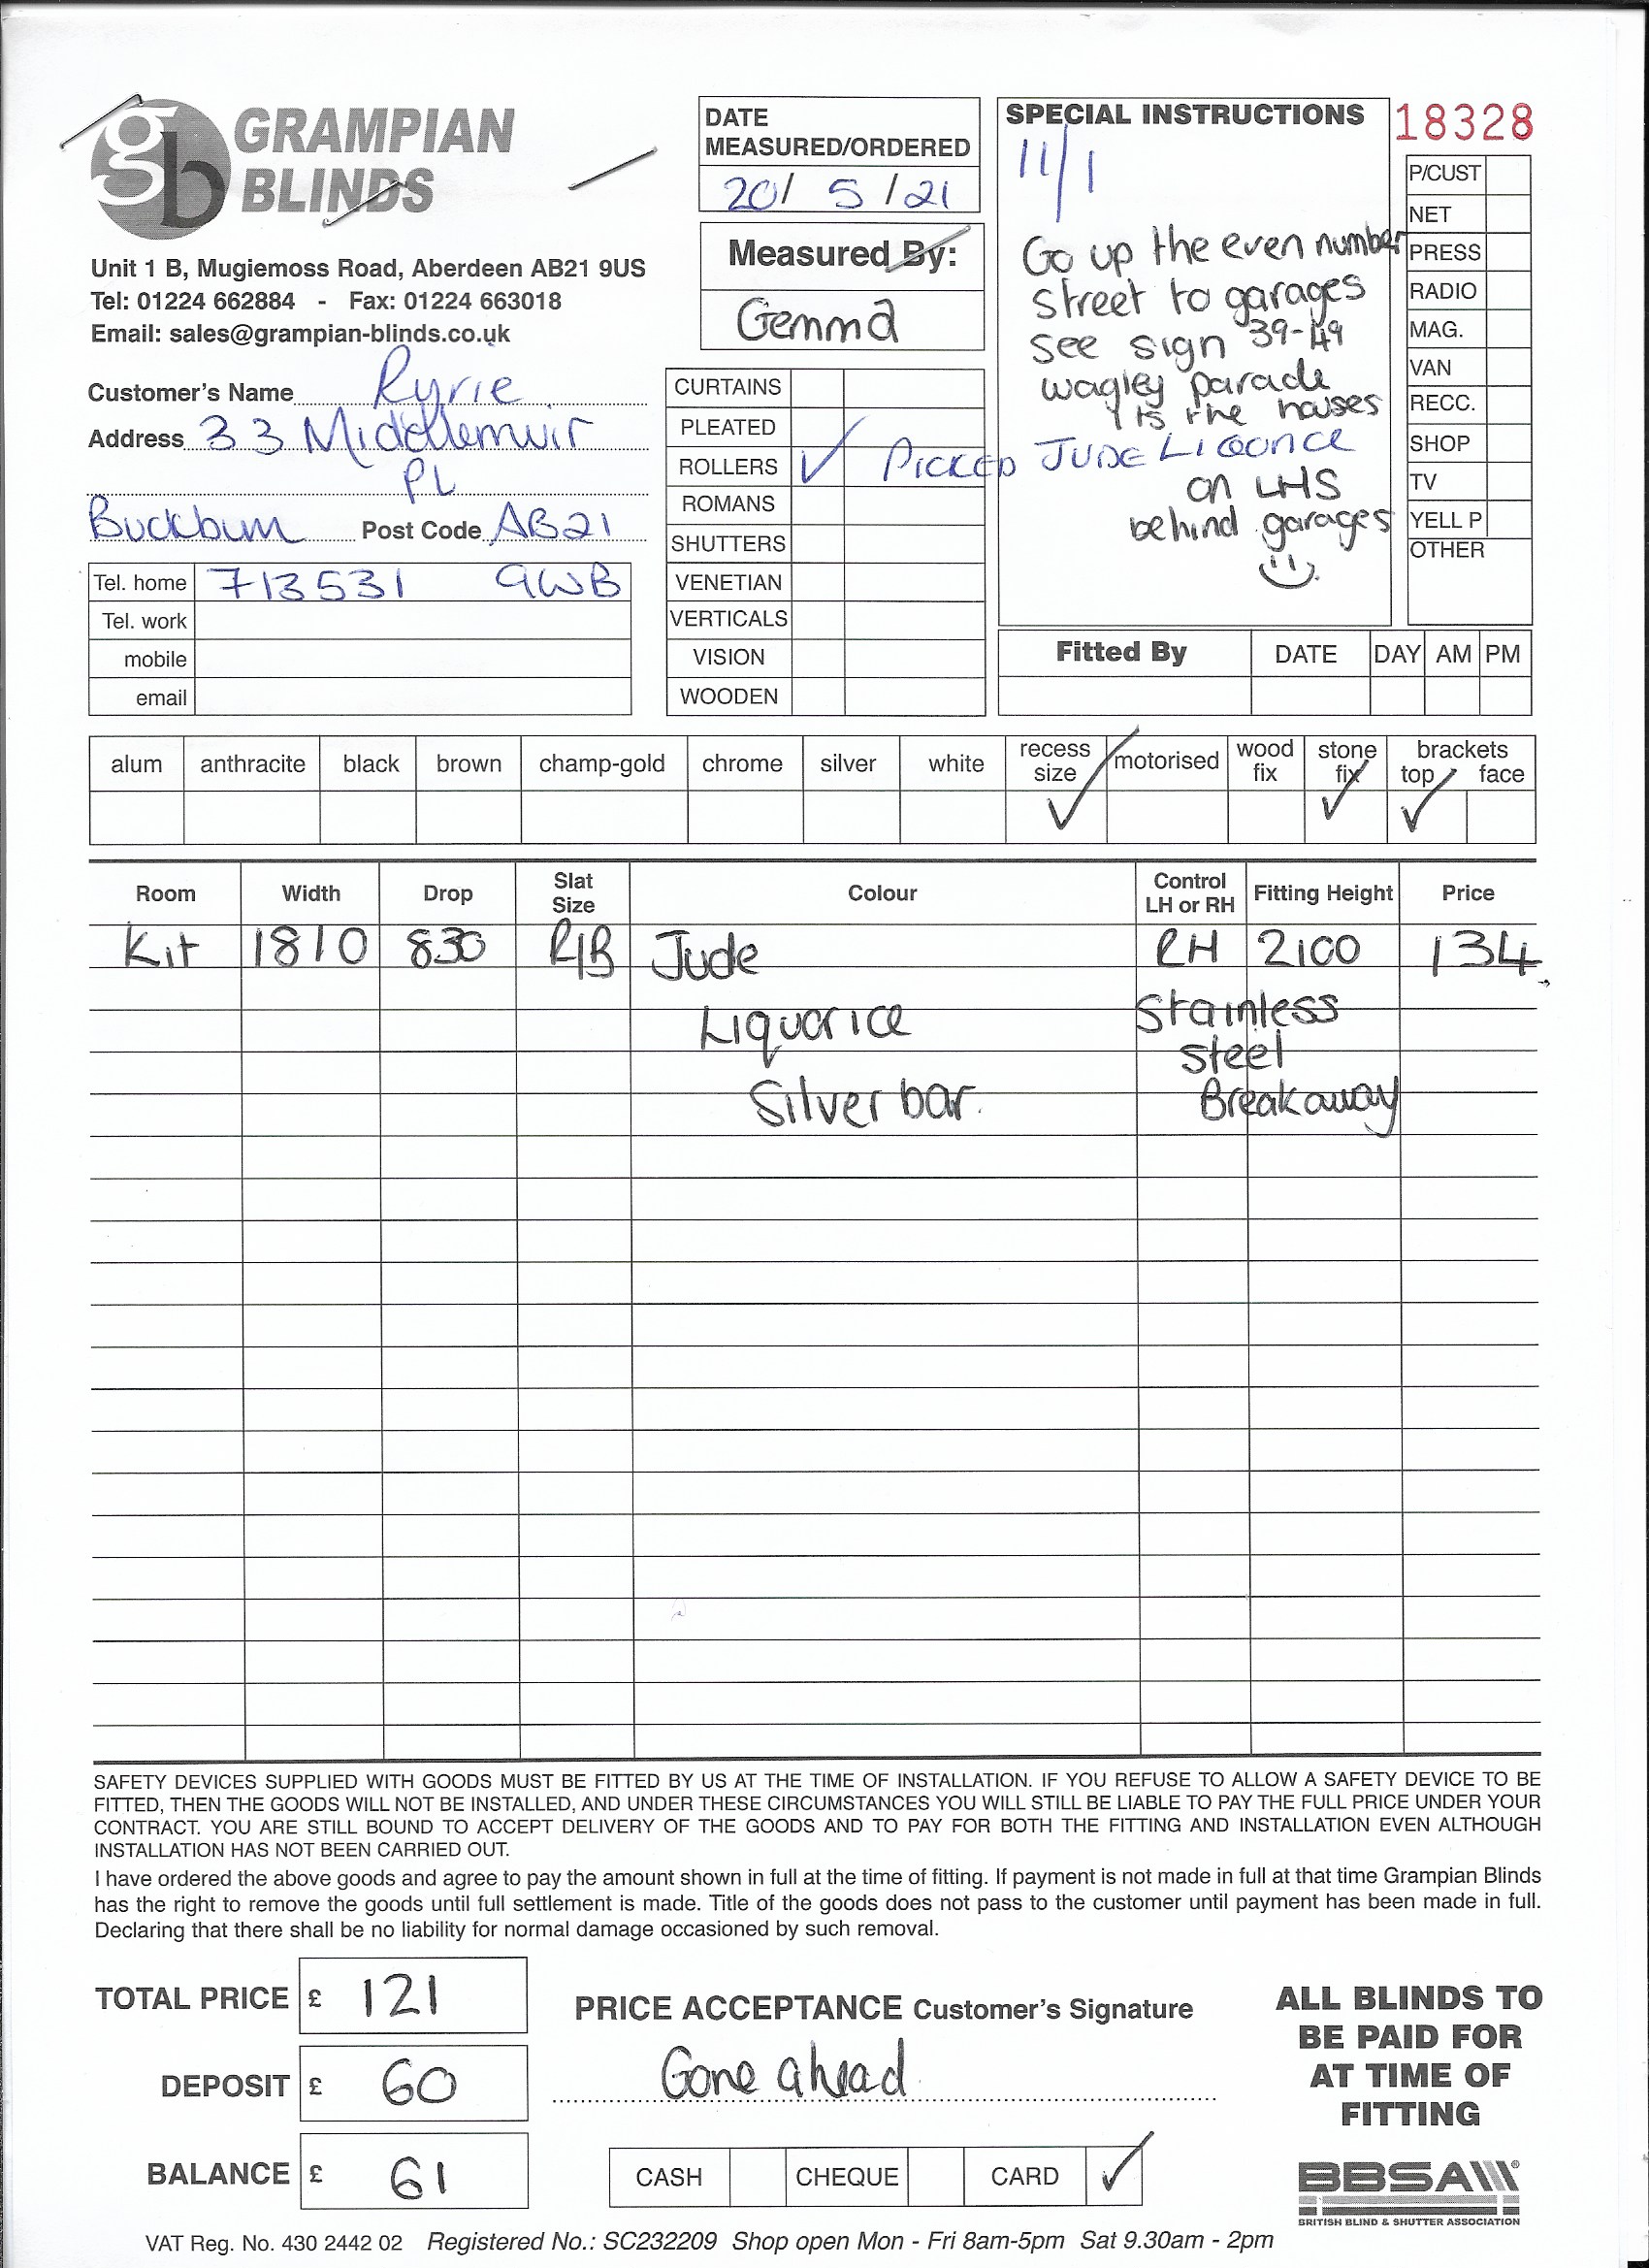 gb GRAMPIAN BLINDS
Unit 1 B, Mugiemoss Road, Aberdeen AB21 9US
Tel: 01224 662884 - Fax: 01224 663018
Email: sales@grampian-blinds.co.uk
Customer's Name Ryrie
Address 33 Middlemuir
PL
Buckburn Post Code AB21
Tel. home 713531 9WB
Tel. work
mobile
email
DATE
MEASURED/ORDERED
20/ 5 /21
Measured By:
Gemma
CURTAINS
PLEATED
ROLLERS ✓ PICKED JUDE LIQONCE
ROMANS
SHUTTERS
VENETIAN
VERTICALS
VISION
WOODEN
SPECIAL INSTRUCTIONS
11/1
Go up the even number
street to garages
see sign 39-49
wagley parade
its the houses
on LHS
behind garages
18328
P/CUST
NET
PRESS
RADIO
MAG.
VAN
RECC.
SHOP
TV
YELL P
OTHER
Fitted By DATE DAY AM PM
alum anthracite black brown champ-gold chrome silver white recess size ✓ motorised wood fix stone fix ✓ brackets top ✓ face
Room Width Drop Slat Size Colour Control LH or RH Fitting Height Price
Kit 1810 830 R/B Jude RH 2100 134
Liquorice Stainless
steel
Silver bar. Breakaway
SAFETY DEVICES SUPPLIED WITH GOODS MUST BE FITTED BY US AT THE TIME OF INSTALLATION. IF YOU REFUSE TO ALLOW A SAFETY DEVICE TO BE
FITTED, THEN THE GOODS WILL NOT BE INSTALLED, AND UNDER THESE CIRCUMSTANCES YOU WILL STILL BE LIABLE TO PAY THE FULL PRICE UNDER YOUR
CONTRACT. YOU ARE STILL BOUND TO ACCEPT DELIVERY OF THE GOODS AND TO PAY FOR BOTH THE FITTING AND INSTALLATION EVEN ALTHOUGH
INSTALLATION HAS NOT BEEN CARRIED OUT.
I have ordered the above goods and agree to pay the amount shown in full at the time of fitting. If payment is not made in full at that time Grampian Blinds
has the right to remove the goods until full settlement is made. Title of the goods does not pass to the customer until payment has been made in full.
Declaring that there shall be no liability for normal damage occasioned by such removal.
TOTAL PRICE £ 121
DEPOSIT £ 60
BALANCE £ 61
PRICE ACCEPTANCE Customer's Signature
Gone ahead
CASH CHEQUE CARD ✓
ALL BLINDS TO
BE PAID FOR
AT TIME OF
FITTING
BBSA®
BRITISH BLIND & SHUTTER ASSOCIATION
VAT Reg. No. 430 2442 02 Registered No.: SC232209 Shop open Mon - Fri 8am-5pm Sat 9.30am - 2pm